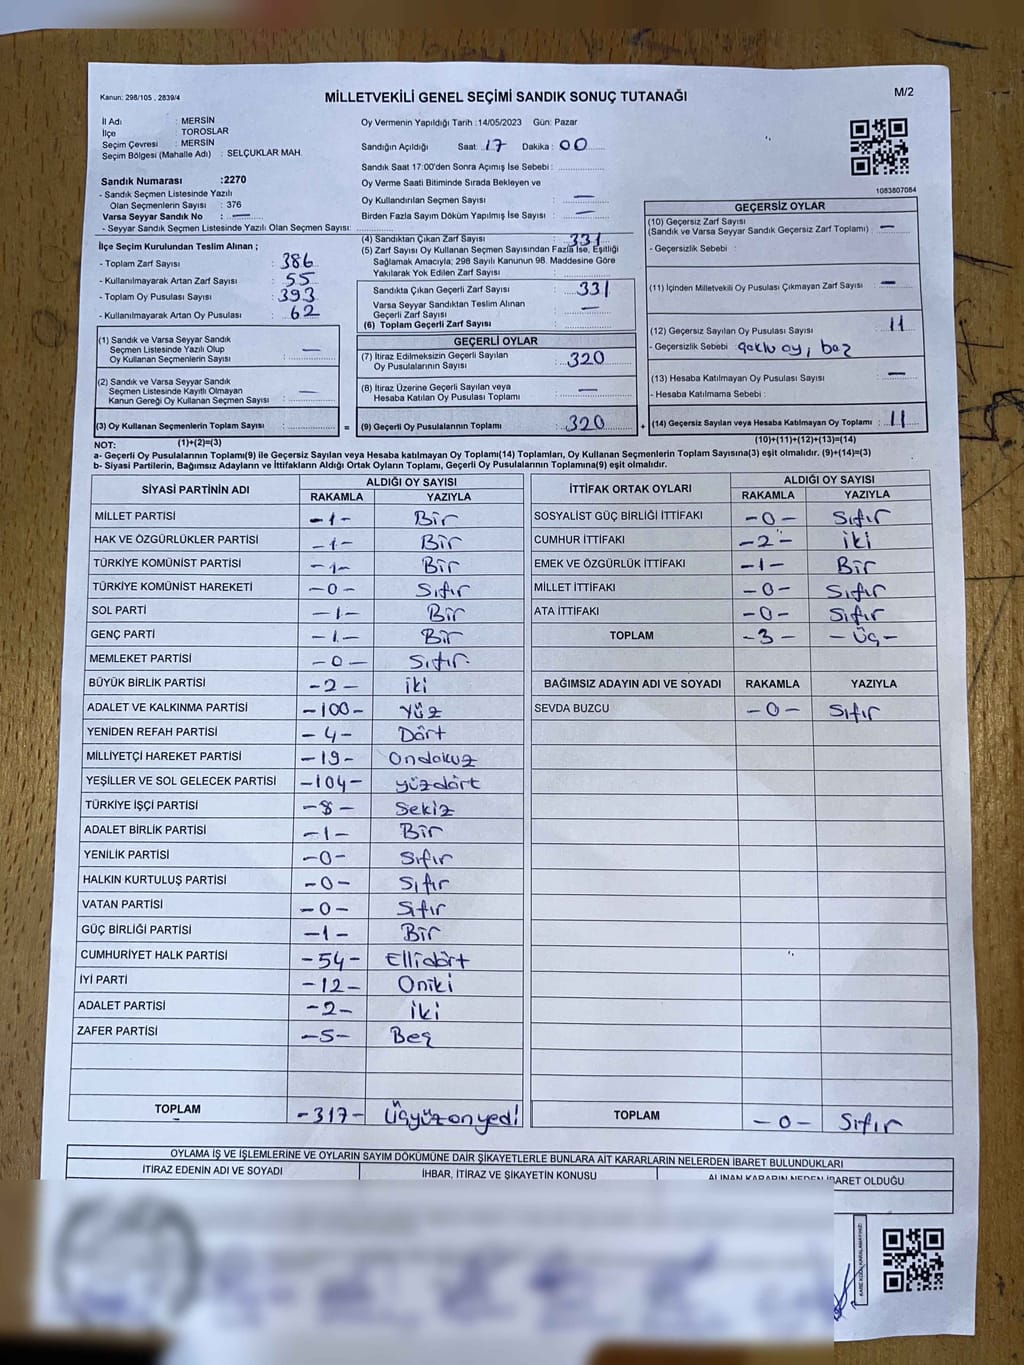 Kanun: 298/105 , 2839/4
MİLLETVEKİLİ GENEL SEÇİMİ SANDIK SONUÇ TUTANAĞI
M/2
İl Adı : MERSİN
İlçe : TOROSLAR
Seçim Çevresi : MERSİN
Seçim Bölgesi (Mahalle Adı) : SELÇUKLAR MAH.
Sandık Numarası :2270
- Sandık Seçmen Listesinde Yazılı
Olan Seçmenlerin Sayısı : 376
Varsa Seyyar Sandık No : —
- Seyyar Sandık Seçmen Listesinde Yazılı Olan Seçmen Sayısı:
Oy Vermenin Yapıldığı Tarih :14/05/2023 Gün: Pazar
Sandığın Açıldığı Saat: 17 Dakika: 00
Sandık Saat 17:00'den Sonra Açımış İse Sebebi :
Oy Verme Saati Bitiminde Sırada Bekleyen ve
Oy Kullandırılan Seçmen Sayısı : —
Birden Fazla Sayım Döküm Yapılmış İse Sayısı : —
1083807084
İlçe Seçim Kurulundan Teslim Alınan ;
- Toplam Zarf Sayısı : 386
- Kullanılmayarak Artan Zarf Sayısı : 55
- Toplam Oy Pusulası Sayısı : 393
- Kullanılmayarak Artan Oy Pusulası : 62
(1) Sandık ve Varsa Seyyar Sandık
Seçmen Listesinde Yazılı Olup
Oy Kullanan Seçmenlerin Sayısı : —
(2) Sandık ve Varsa Seyyar Sandık
Seçmen Listesinde Kayıtlı Olmayan
Kanun Gereği Oy Kullanan Seçmen Sayısı : —
(3) Oy Kullanan Seçmenlerin Toplam Sayısı :
=
(4) Sandıktan Çıkan Zarf Sayısı : 331
(5) Zarf Sayısı Oy Kullanan Seçmen Sayısından Fazla İse, Eşitliği
Sağlamak Amacıyla; 298 Sayılı Kanunun 98. Maddesine Göre
Yakılarak Yok Edilen Zarf Sayısı :
Sandıkta Çıkan Geçerli Zarf Sayısı : 331
Varsa Seyyar Sandıktan Teslim Alınan
Geçerli Zarf Sayısı : —
(6) Toplam Geçerli Zarf Sayısı :
GEÇERLİ OYLAR
(7) İtiraz Edilmeksizin Geçerli Sayılan
Oy Pusulalarının Sayısı : 320
(8) İtiraz Üzerine Geçerli Sayılan veya
Hesaba Katılan Oy Pusulası Toplamı : —
(9) Geçerli Oy Pusulalarının Toplamı : 320
+
GEÇERSİZ OYLAR
(10) Geçersiz Zarf Sayısı
(Sandık ve Varsa Seyyar Sandık Geçersiz Zarf Toplamı) : —
- Geçersizlik Sebebi :
(11) İçinden Milletvekili Oy Pusulası Çıkmayan Zarf Sayısı : —
(12) Geçersiz Sayılan Oy Pusulası Sayısı : 11
- Geçersizlik Sebebi : çoklu oy, boş
(13) Hesaba Katılmayan Oy Pusulası Sayısı : —
- Hesaba Katılmama Sebebi :
(14) Geçersiz Sayılan veya Hesaba Katılmayan Oy Toplamı : 11
NOT: (1)+(2)=(3) (10)+(11)+(12)+(13)=(14)
a- Geçerli Oy Pusulalarının Toplamı(9) ile Geçersiz Sayılan veya Hesaba katılmayan Oy Toplamı(14) Toplamları, Oy Kullanan Seçmenlerin Toplam Sayısına(3) eşit olmalıdır. (9)+(14)=(3)
b- Siyasi Partilerin, Bağımsız Adayların ve İttifakların Aldığı Ortak Oyların Toplamı, Geçerli Oy Pusulalarının Toplamına(9) eşit olmalıdır.
SİYASİ PARTİNİN ADI ALDIĞI OY SAYISI
RAKAMLA YAZIYLA
MİLLET PARTİSİ -1- Bir
HAK VE ÖZGÜRLÜKLER PARTİSİ -1- Bir
TÜRKİYE KOMÜNİST PARTİSİ -1- Bir
TÜRKİYE KOMÜNİST HAREKETİ -0- Sıfır
SOL PARTİ -1- Bir
GENÇ PARTİ -1- Bir
MEMLEKET PARTİSİ -0- Sıfır
BÜYÜK BİRLİK PARTİSİ -2- iki
ADALET VE KALKINMA PARTİSİ -100- Yüz
YENİDEN REFAH PARTİSİ -4- Dört
MİLLİYETÇİ HAREKET PARTİSİ -19- Ondokuz
YEŞİLLER VE SOL GELECEK PARTİSİ -104- yüzdört
TÜRKİYE İŞÇİ PARTİSİ -8- Sekiz
ADALET BİRLİK PARTİSİ -1- Bir
YENİLİK PARTİSİ -0- Sıfır
HALKIN KURTULUŞ PARTİSİ -0- Sıfır
VATAN PARTİSİ -0- Sıfır
GÜÇ BİRLİĞİ PARTİSİ -1- Bir
CUMHURİYET HALK PARTİSİ -54- Ellidört
İYİ PARTİ -12- Oniki
ADALET PARTİSİ -2- iki
ZAFER PARTİSİ -5- Beş
TOPLAM -317- Üçyüzonyedi
İTTİFAK ORTAK OYLARI ALDIĞI OY SAYISI
RAKAMLA YAZIYLA
SOSYALİST GÜÇ BİRLİĞİ İTTİFAKI -0- Sıfır
CUMHUR İTTİFAKI -2- iki
EMEK VE ÖZGÜRLÜK İTTİFAKI -1- Bir
MİLLET İTTİFAKI -0- Sıfır
ATA İTTİFAKI -0- Sıfır
TOPLAM -3- -Üç-
BAĞIMSIZ ADAYIN ADI VE SOYADI RAKAMLA YAZIYLA
SEVDA BUZCU -0- Sıfır
TOPLAM -0- Sıfır
OYLAMA İŞ VE İŞLEMLERİNE VE OYLARIN SAYIM DÖKÜMÜNE DAİR ŞİKAYETLERLE BUNLARA AİT KARARLARIN NELERDEN İBARET BULUNDUKLARI
İTİRAZ EDENİN ADI VE SOYADI İHBAR, İTİRAZ VE ŞİKAYETİN KONUSU ALINAN KARARIN NEDEN İBARET OLDUĞU